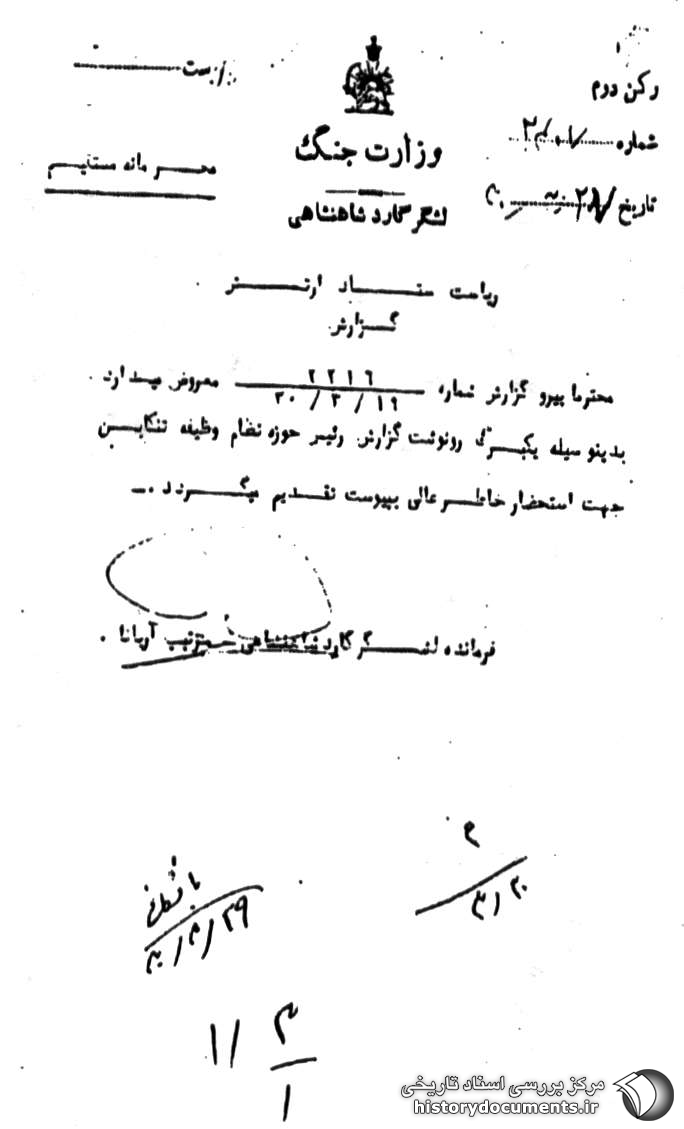 رکن دوم
شماره
تاریخ
پیوست
وزارت جنگ
لشگر گارد شاهنشاهی
محرمانه مستقیم
ریاست ستاد ارتش
گزارش
محترما پیرو گزارش شماره ۲۲۱۶ ۱۹/۳/۳۰ معروض میدارد .
بدینوسیله یکبرگ رونوشت گزارش رئیس حوزه نظام وظیفه تنکابن
جهت استحضار خاطر عالی بپیوست تقدیم میگردد .ـ
فرمانده لشگر گارد شاهنشاهی سرتیپ آریانا .
۲۹/۳/۳۰
مرکز بررسی اسناد تاریخی
historydocuments.ir